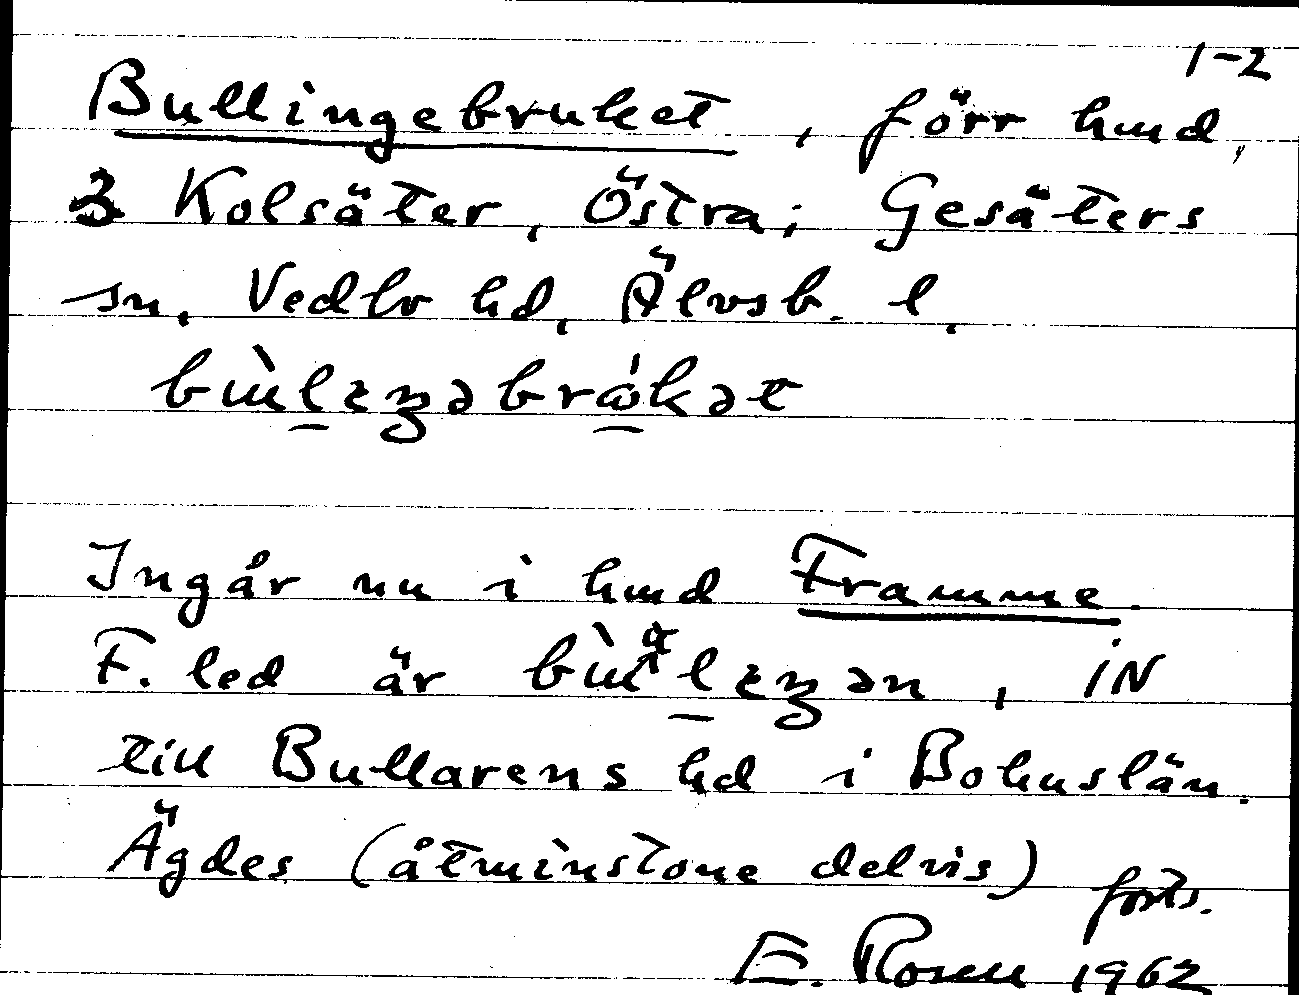 1-2
Bullingebruket, förr hmd,
3 Kolsäter, Östra; Gesäters
sn, Vedbo hd, Älvsb. l.
bùlɪŋəbrɷ́kət
Ingår nu i hmd Framme.
F. led är bùlɪŋən, iN
till Bullarens hd i Bohuslän.
Ägdes (åtminstone delvis) forts.
E. Rosen 1962